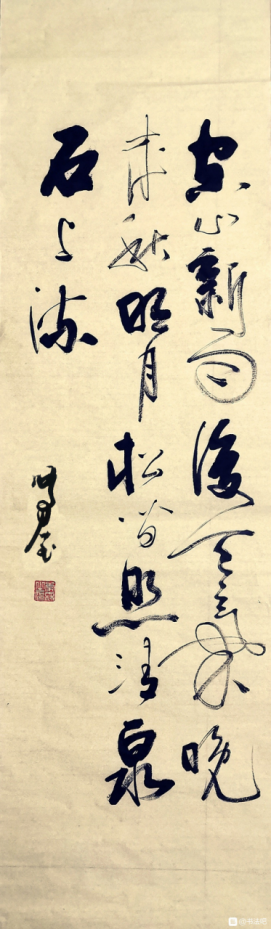 空山新雨後天氣晚
來秋明月松間照清泉
石上流